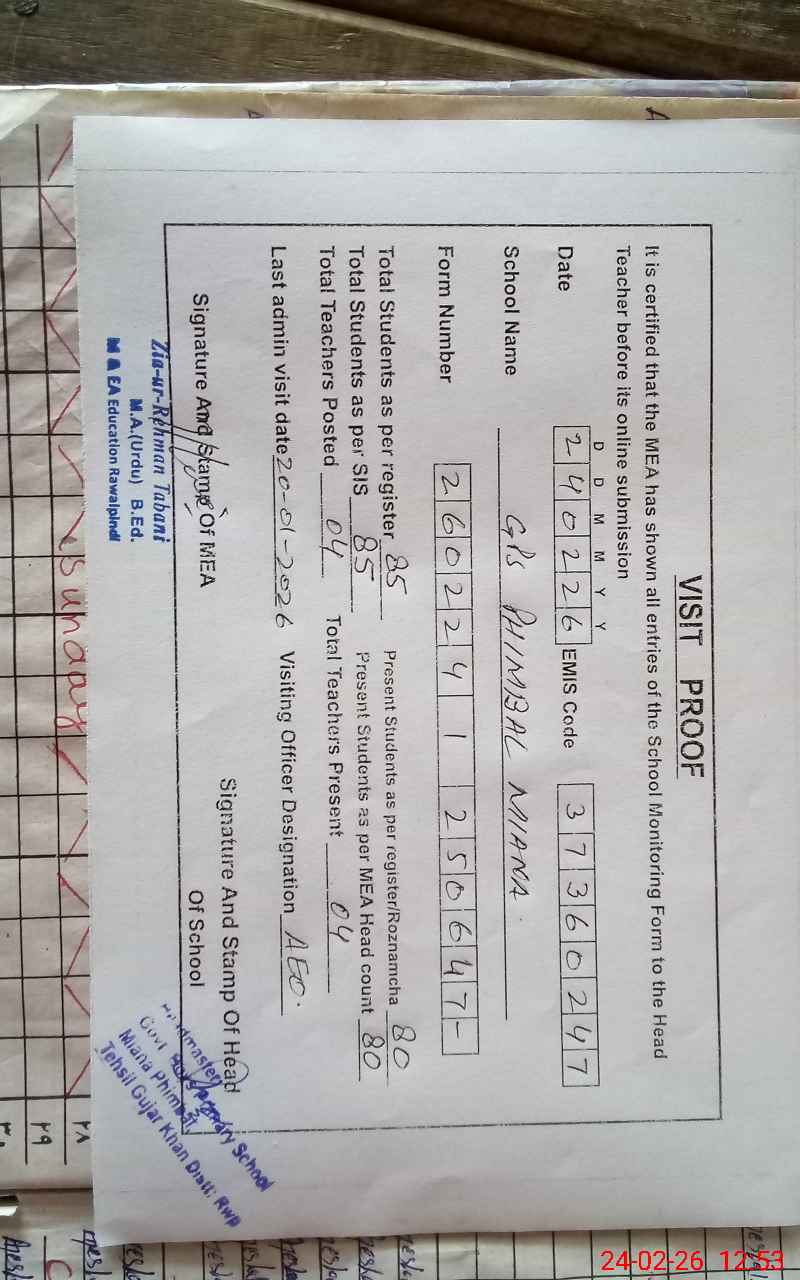 VISIT PROOF
It is certified that the MEA has shown all entries of the School Monitoring Form to the Head
Teacher before its online submission
D D M M Y Y
Date 240226 EMIS Code 37360247
School Name GPS PHIMBAL MIANA.
Form Number 2602241250647-
Total Students as per register 85 Present Students as per register/Roznamcha 80
Total Students as per SIS 85 Present Students as per MEA Head count 80
Total Teachers Posted 04 Total Teachers Present 04
Last admin visit date 20-01-2026 Visiting Officer Designation AEO.
Signature And Stamp Of MEA
Signature And Stamp Of Head
Of School
Zia-ur-Rehman Tabani
M.A.(Urdu) B.Ed.
M & EA Education Rawalpindi
Headmaster
Govt Primary School
Miana Phimbal
Tehsil Gujar Khan Distt: Rwp
Sunday
۲۸
۲۹
24-02-26 12:53